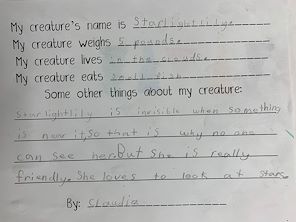 My creature's name is Starlightlily.
My creature weighs 5 pounds.
My creature lives in the clouds.
My creature eats small fish.
Some other things about my creature:
Starlightlily is invisible when something
is near it, so that is why no one
can see her. But she is really
friendly. She loves to look at stars.
By: Claudia